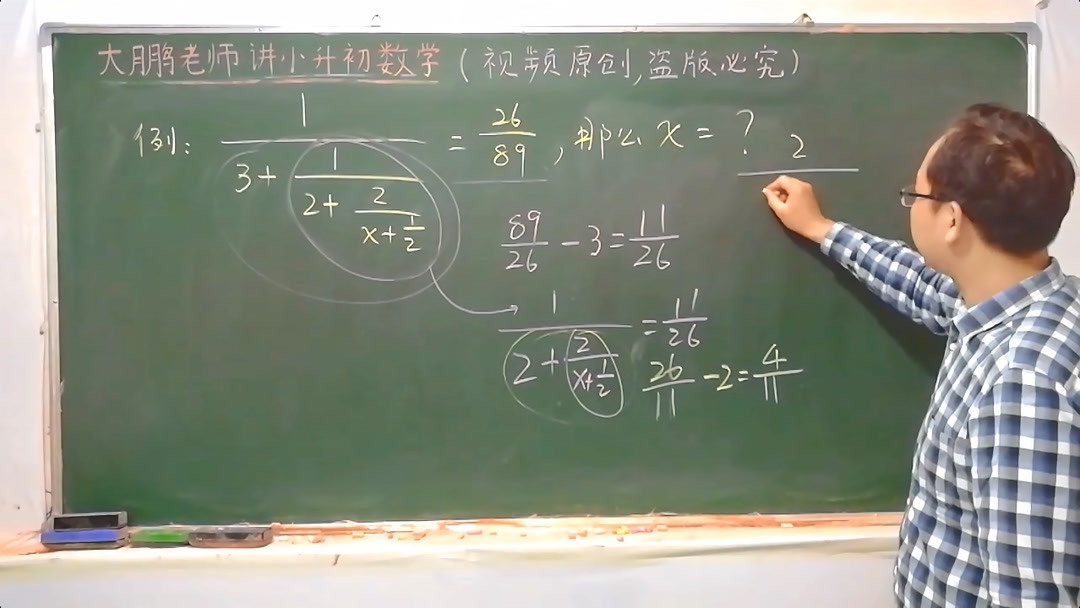 大鹏老师讲小升初数学(视频原创,盗版必究)
例: 1/(3+1/(2+2/(x+1/2))) = 26/89, 那么 x = ?
2
89/26 - 3 = 11/26
1/(2+2/(x+1/2)) = 11/26
26/11 - 2 = 4/11